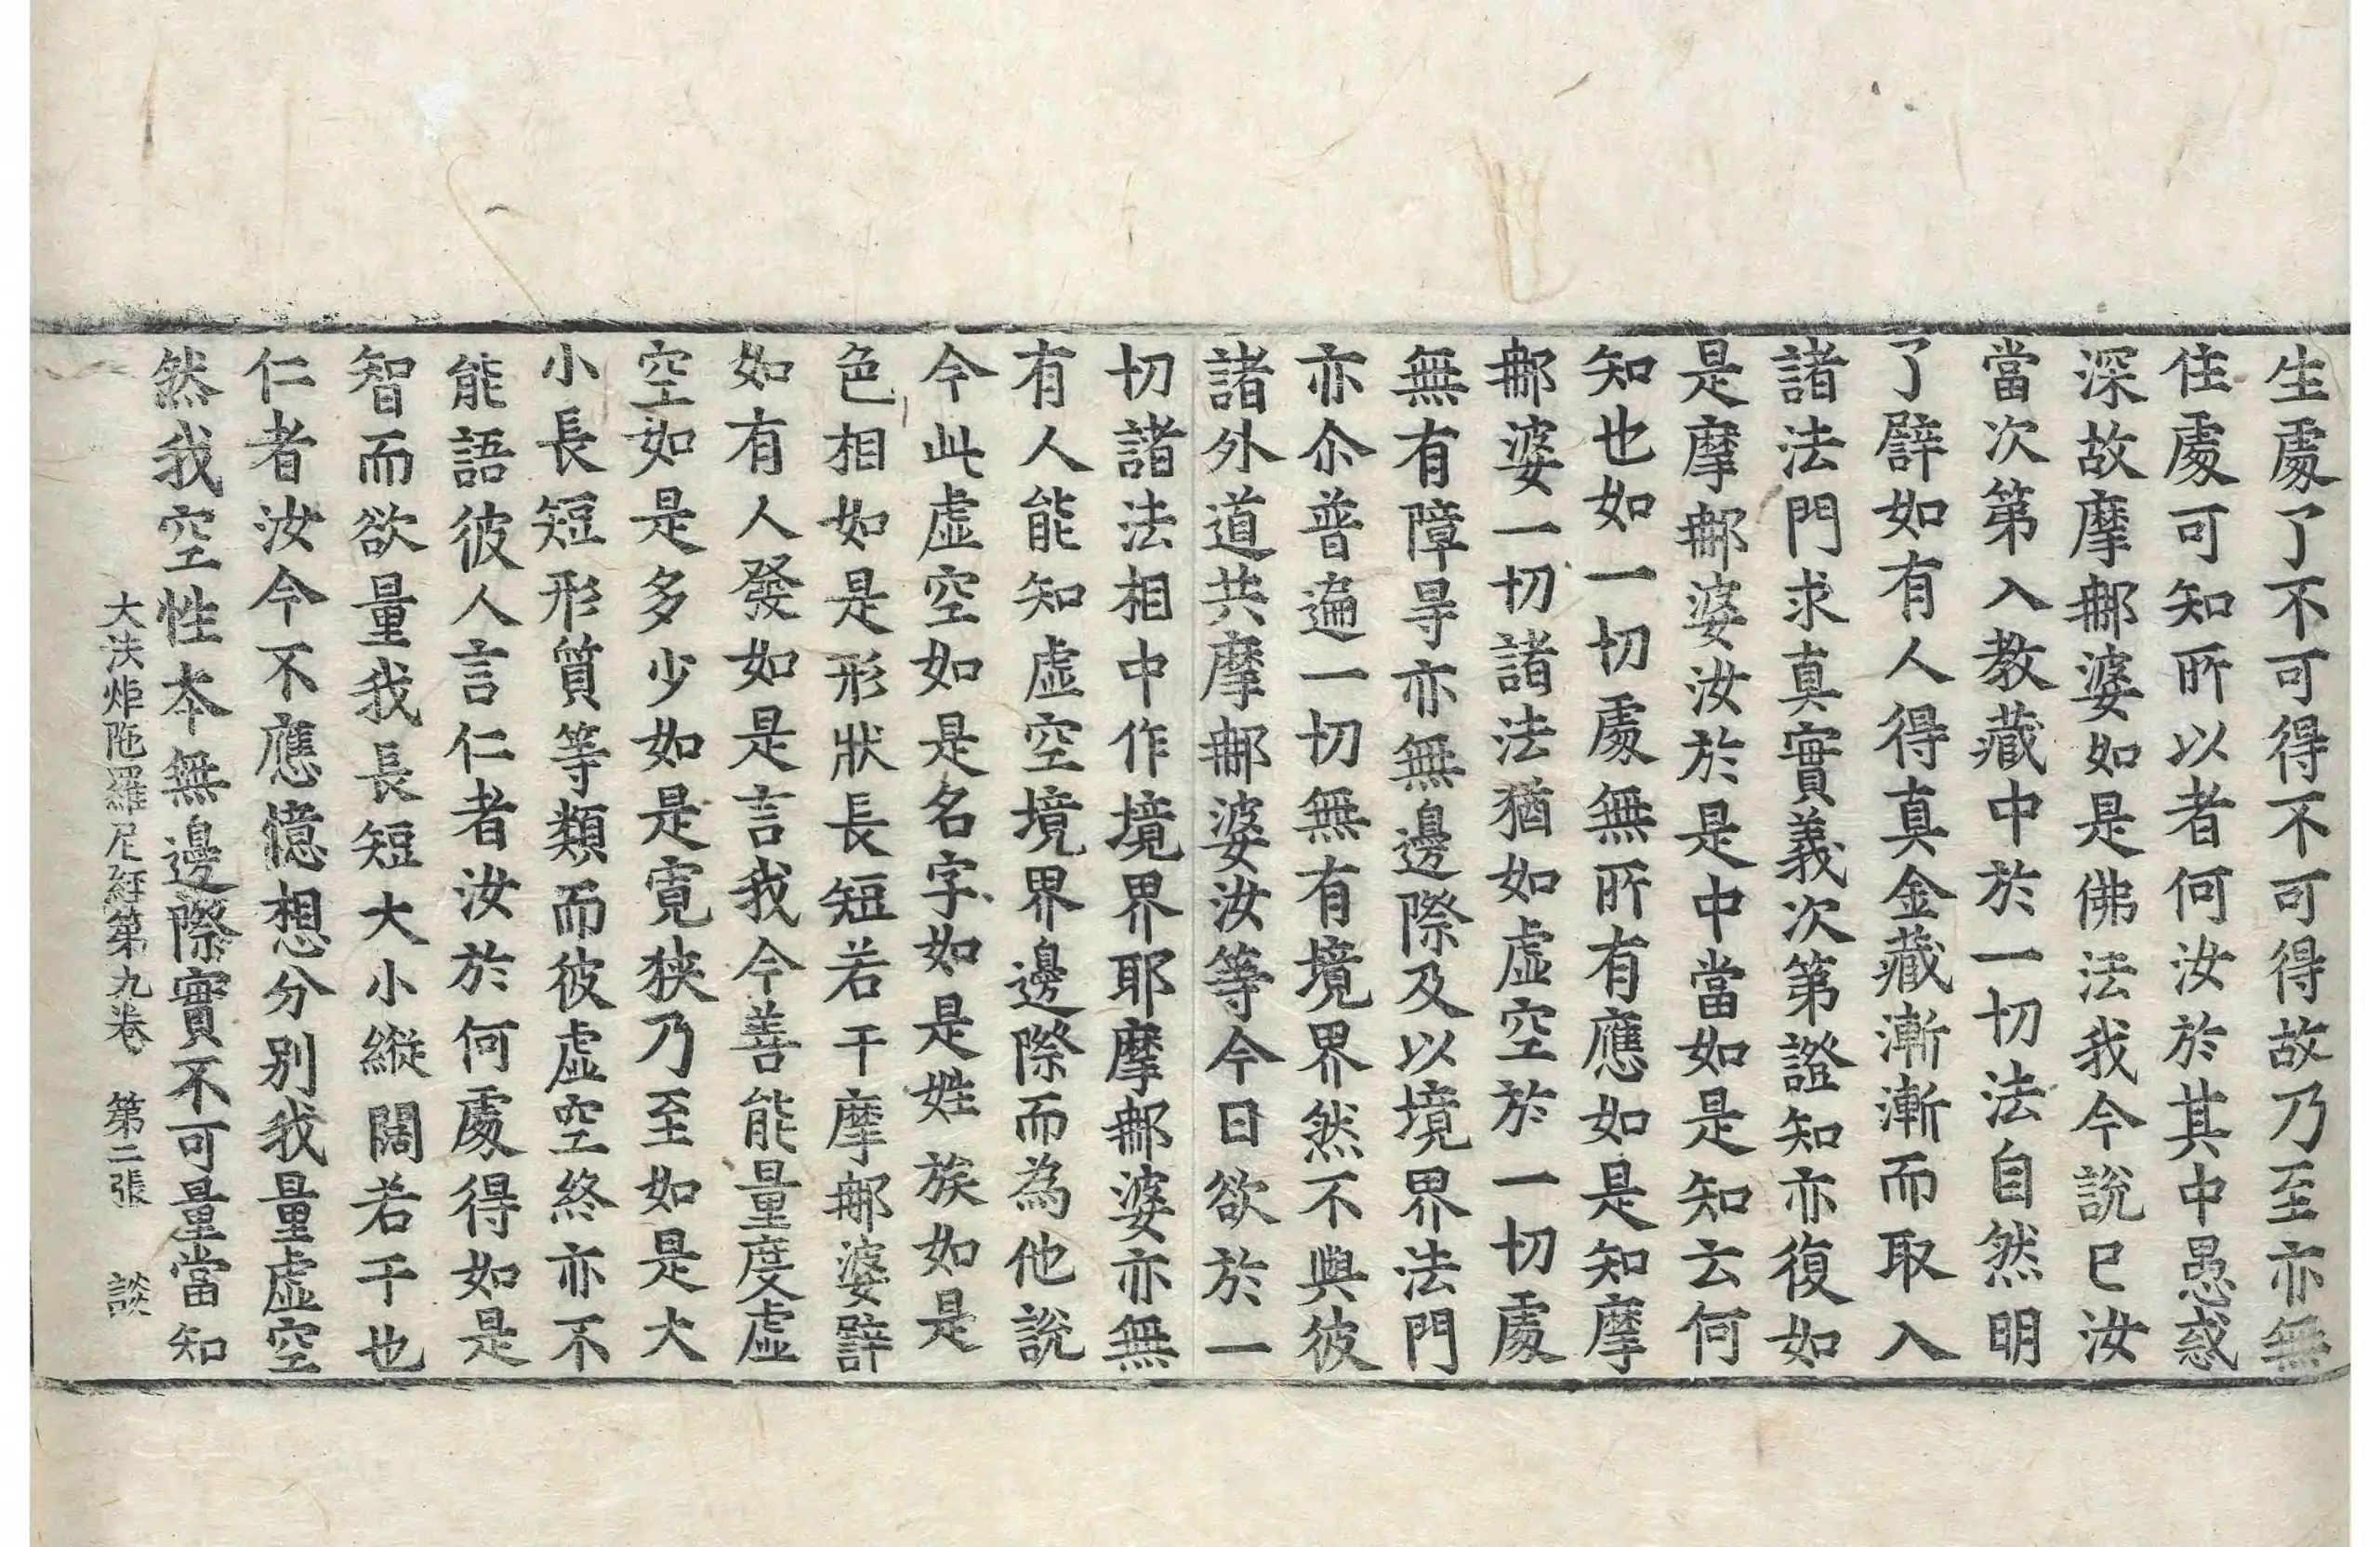 生處了不可得不可得故乃至亦無
住處可知所以者何汝於其中愚惑
深故摩郍婆如是佛法我今說已汝
當次第入教藏中於一切法自然明
了辟如有人得真金藏漸漸而取入
諸法門求真實義次第證知亦復如
是摩郍婆汝於是中當如是知云何
知也如一切處無所有應如是知摩
郍婆一切諸法猶如虛空於一切處
無有障㝵亦無邊際及以境界法門
亦尒普遍一切無有境界然不與彼
諸外道共摩郍婆汝等今日欲於一
切諸法相中作境界耶摩郍婆亦無
有人能知虛空境界邊際而為他說
今此虛空如是名字如是姓族如是
色相如是形狀長短若干摩郍婆辟
如有人發如是言我今善能量度虛
空如是多少如是寬狹乃至如是大
小長短形質等類而彼虛空終亦不
能語彼人言仁者汝於何處得如是
智而欲量我長短大小縱闊若干也
仁者汝今不應憶想分別我量虛空
然我空性本無邊際實不可量當知
大法炬陁羅尼經第九卷 第二張 談